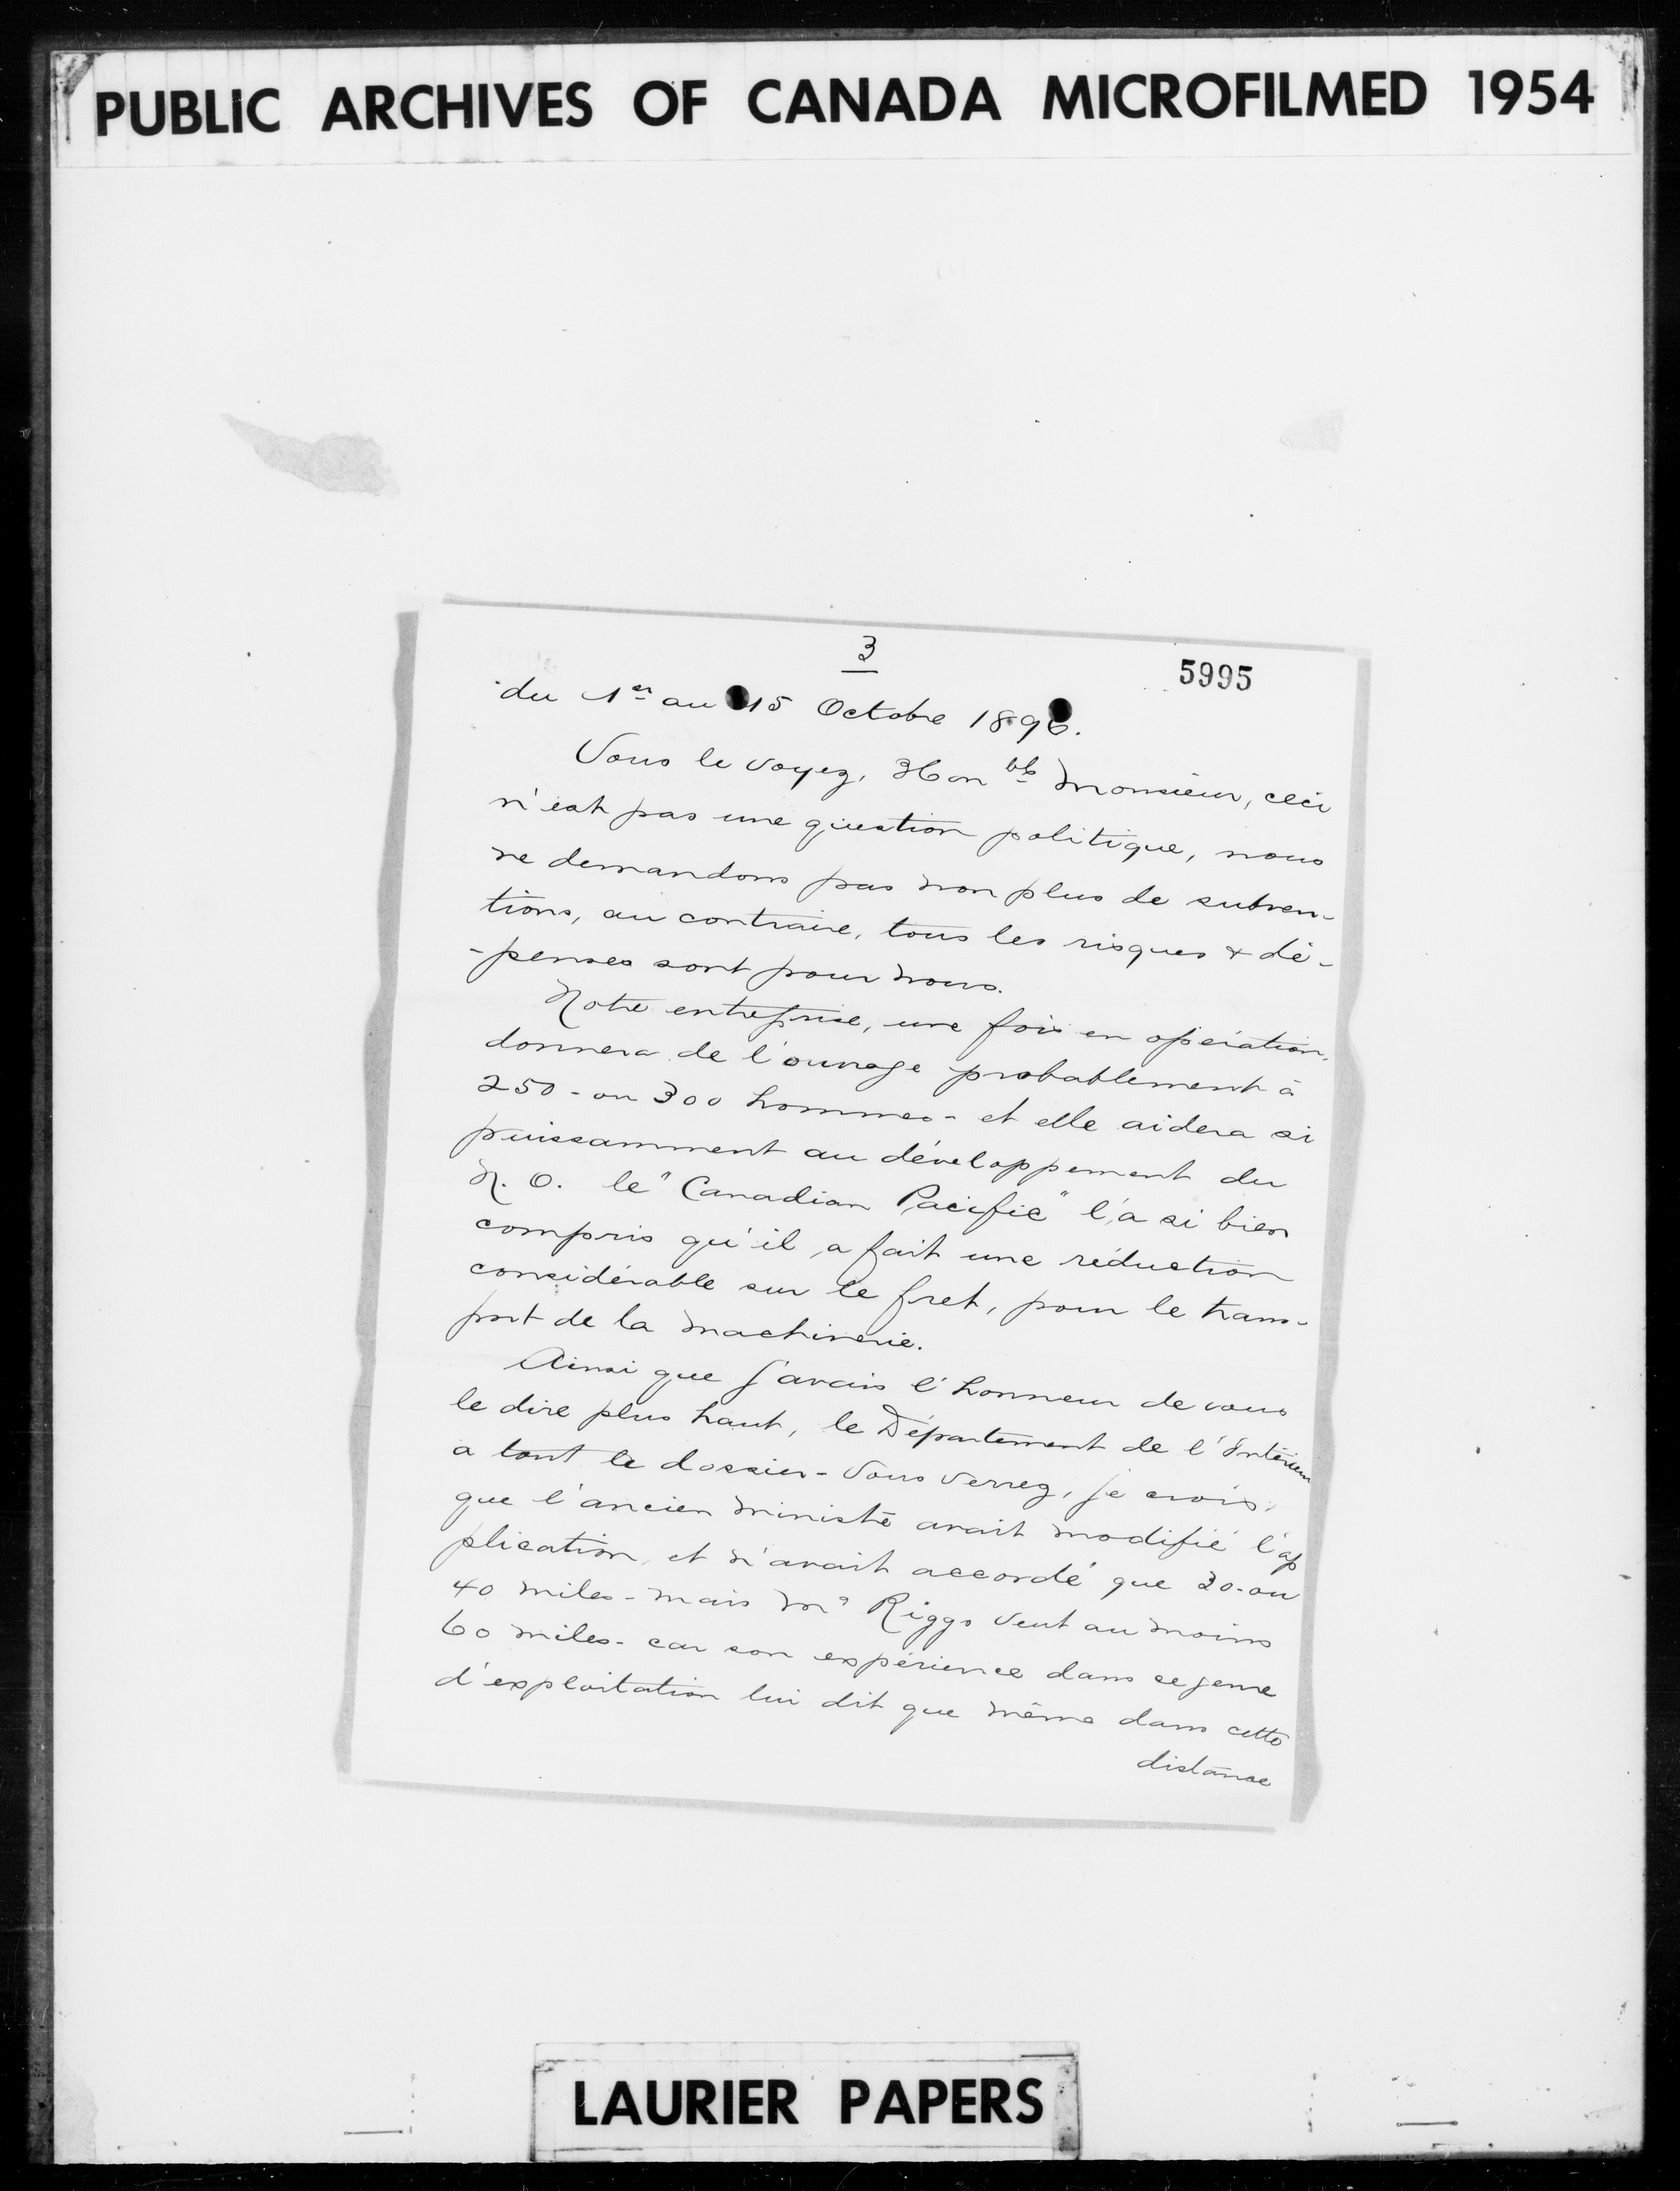 PUBLIC ARCHIVES OF CANADA MICROFILMED 1954
3
5995
du 1er au 15 Octobre 1896.
Vous le voyez, Honble Monsieur, ceci
n'est pas une question politique, nous
ne demandons pas non plus de subven-
tions, au contraire, tous les risques & dé-
-penses sont pour nous.
Notre entreprise, une fois en opération,
donnera de l'ouvrage probablement à
250 - ou 300 hommes - et elle aidera si
puissamment au développement du
N. O. le "Canadian Pacific" l'a si bien
compris qu'il a fait une réduction
considérable sur le fret, pour le trans-
port de la machinerie.
Ainsi que j'avais l'honneur de vous
le dire plus haut, le Département de l'Intérieur
a tout le dossier - Vous verrez, je crois,
que l'ancien ministre avait modifié l'ap
plication, et n'avait accordé que 30 - ou
40 miles - mais Mr Riggs veut au moins
60 miles - car son expérience dans ce genre
d'exploitation lui dit que même dans cette
distance
LAURIER PAPERS